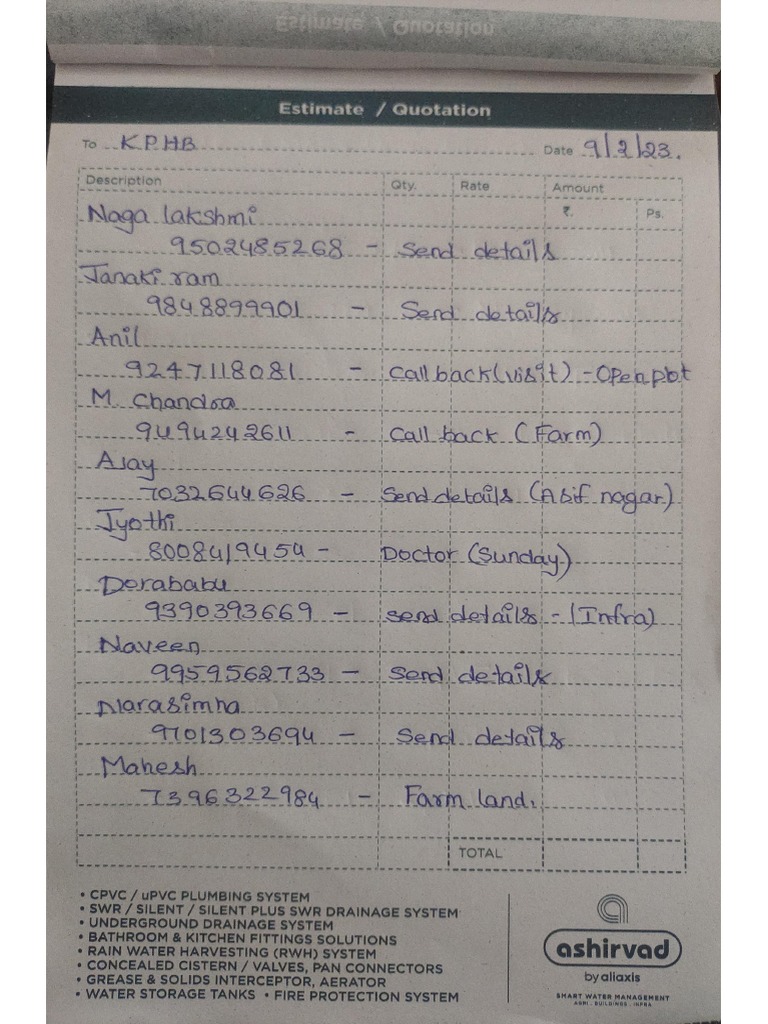 Estimate / Quotation
Estimate / Quotation
To K.P.H.B Date 9/2/23.
Description Qty. Rate Amount
₹. Ps.
Naga lakshmi
9502485268 - Send details
Janaki ram
9848899901 - Send details
Anil
9247118081 - Call back (visit) - Open plot
M. Chandra
9494242611 - Call back (Farm)
Ajay
7032644626 - Send details (Asif nagar)
Jyothi
8008419454 - Doctor (Sunday)
Dorababu
9390393669 - send details - (Infra)
Naveen
9959562733 - Send details
Narasimha
9701303694 - Send details
Mahesh
7396322984 - Farm land.
TOTAL
• CPVC / uPVC PLUMBING SYSTEM
• SWR / SILENT / SILENT PLUS SWR DRAINAGE SYSTEM
• UNDERGROUND DRAINAGE SYSTEM
• BATHROOM & KITCHEN FITTINGS SOLUTIONS
• RAIN WATER HARVESTING (RWH) SYSTEM
• CONCEALED CISTERN / VALVES, PAN CONNECTORS
• GREASE & SOLIDS INTERCEPTOR, AERATOR
• WATER STORAGE TANKS • FIRE PROTECTION SYSTEM
ashirvad
by aliaxis
SMART WATER MANAGEMENT
AGRI . BUILDINGS . INFRA